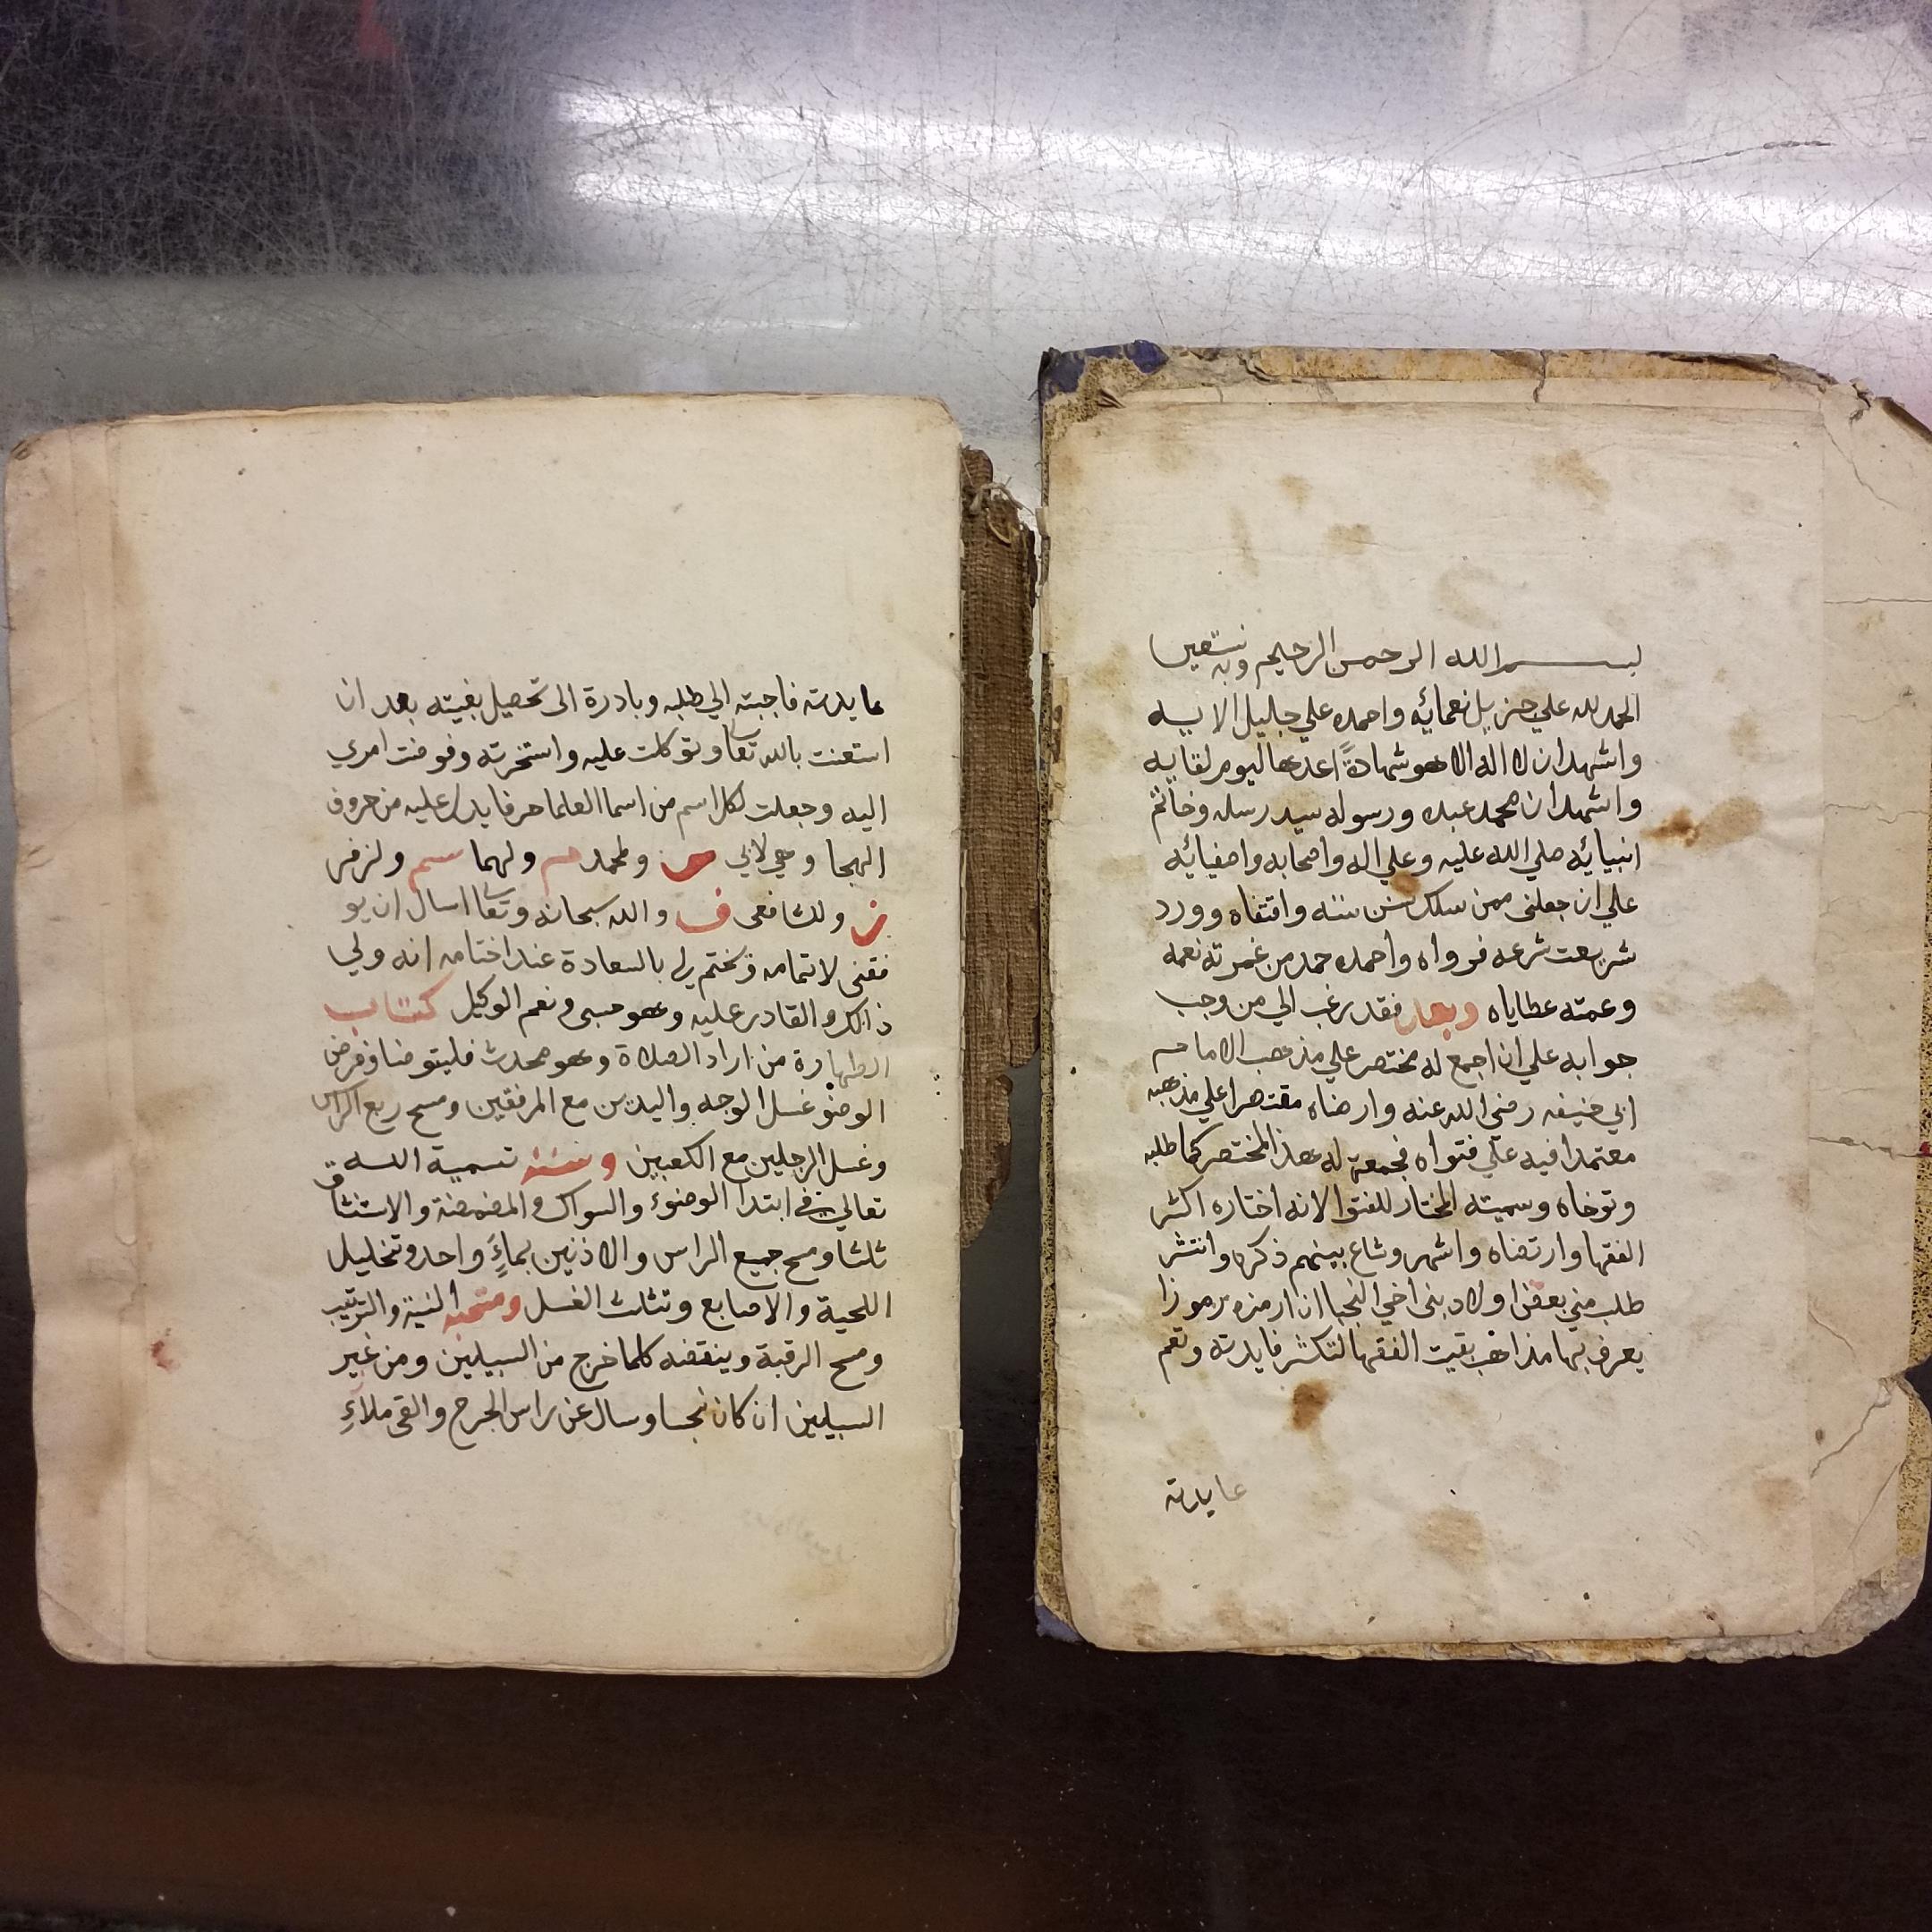 بسم الله الرحمن الرحيم وبه نستعين
الحمد لله علي جزيل نعمائه واحمده علي جليل الايه
واشهد ان لا اله الا هو شهادةً اعدها ليوم لقايه
واشهد ان محمد عبده ورسوله سيد رسله وخاتم
انبيائه صلي الله عليه وعلي اله واصحابه واصفيائه
علي ان جعلني ممن سلك سنن سننه واقتفاه وورد
شريعت شرعه فرواه واحمده حمد من غمرته نعمه
وعمته عطاياه وبعد فقد رغب الي من وجب
جوابه علي ان اجمع له مختصر علي مذهب الامام
ابي حنيفه رضي الله عنه وارضاه مقتصرا علي مذهبه
معتمدا فيه علي فتواه فجمعة له هذا المختصر كما طلبه
وتوخاه وسميته المختار للفتوا لانه اختاره اكثر
الفقها وارتضاه واشهر وشاع بينهم ذكره وانتشر
طلب مني بعض اولاد بني اخي النجبا ان ارمزه رموزا
يعرف بها مذاهب بقيت الفقها لتكثر فايدته وتعم
عايدته
عايدته فاجبته الي طلبه وبادرة الى تحصيل بغيته بعد ان
استعنت بالله تعا وتوكلت عليه واستخرته وفوضت امري
اليه وجعلت لكل اسم من اسما العلما حرفا يدل عليه من حروف
الهجا وهي لابي س ولمحمد م ولهما سم ولزفر
ز ولشافعى ف والله سبحانه وتعا اسال ان يو
فقنى لاتمامه ويختم لي بالسعادة عند اختامه انه ولي
ذالك والقادر عليه وهو حسبى ونعم الوكيل كتاب
الطهارة من اراد الصلاة وهو محدث فليتوضا وفرض
الوضؤ غسل الوجه واليدين مع المرفقين ومسح ربع الراس
وغسل الرجلين مع الكعبين وسننه تسمية الله
تعالي في ابتدا الوضوء والسواك والمضمضة والاستنشاق
ثلثا ومسح جميع الراس والاذنين بماءٍ واحد وتخليل
اللحية والاصابع وتثلث الغسل ومتحبه النية والترتيب
ومسح الرقبة وينقضه كلما خرج من السبيلين ومن غير
السبيلين ان كان نجسا وسال عن راس الجرح والقى ملاءِ